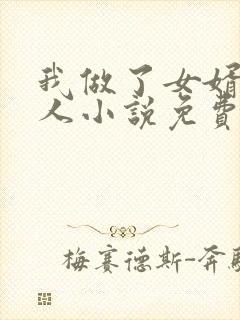 我做了女婿
人小説免費
梅賽德斯-奔馳